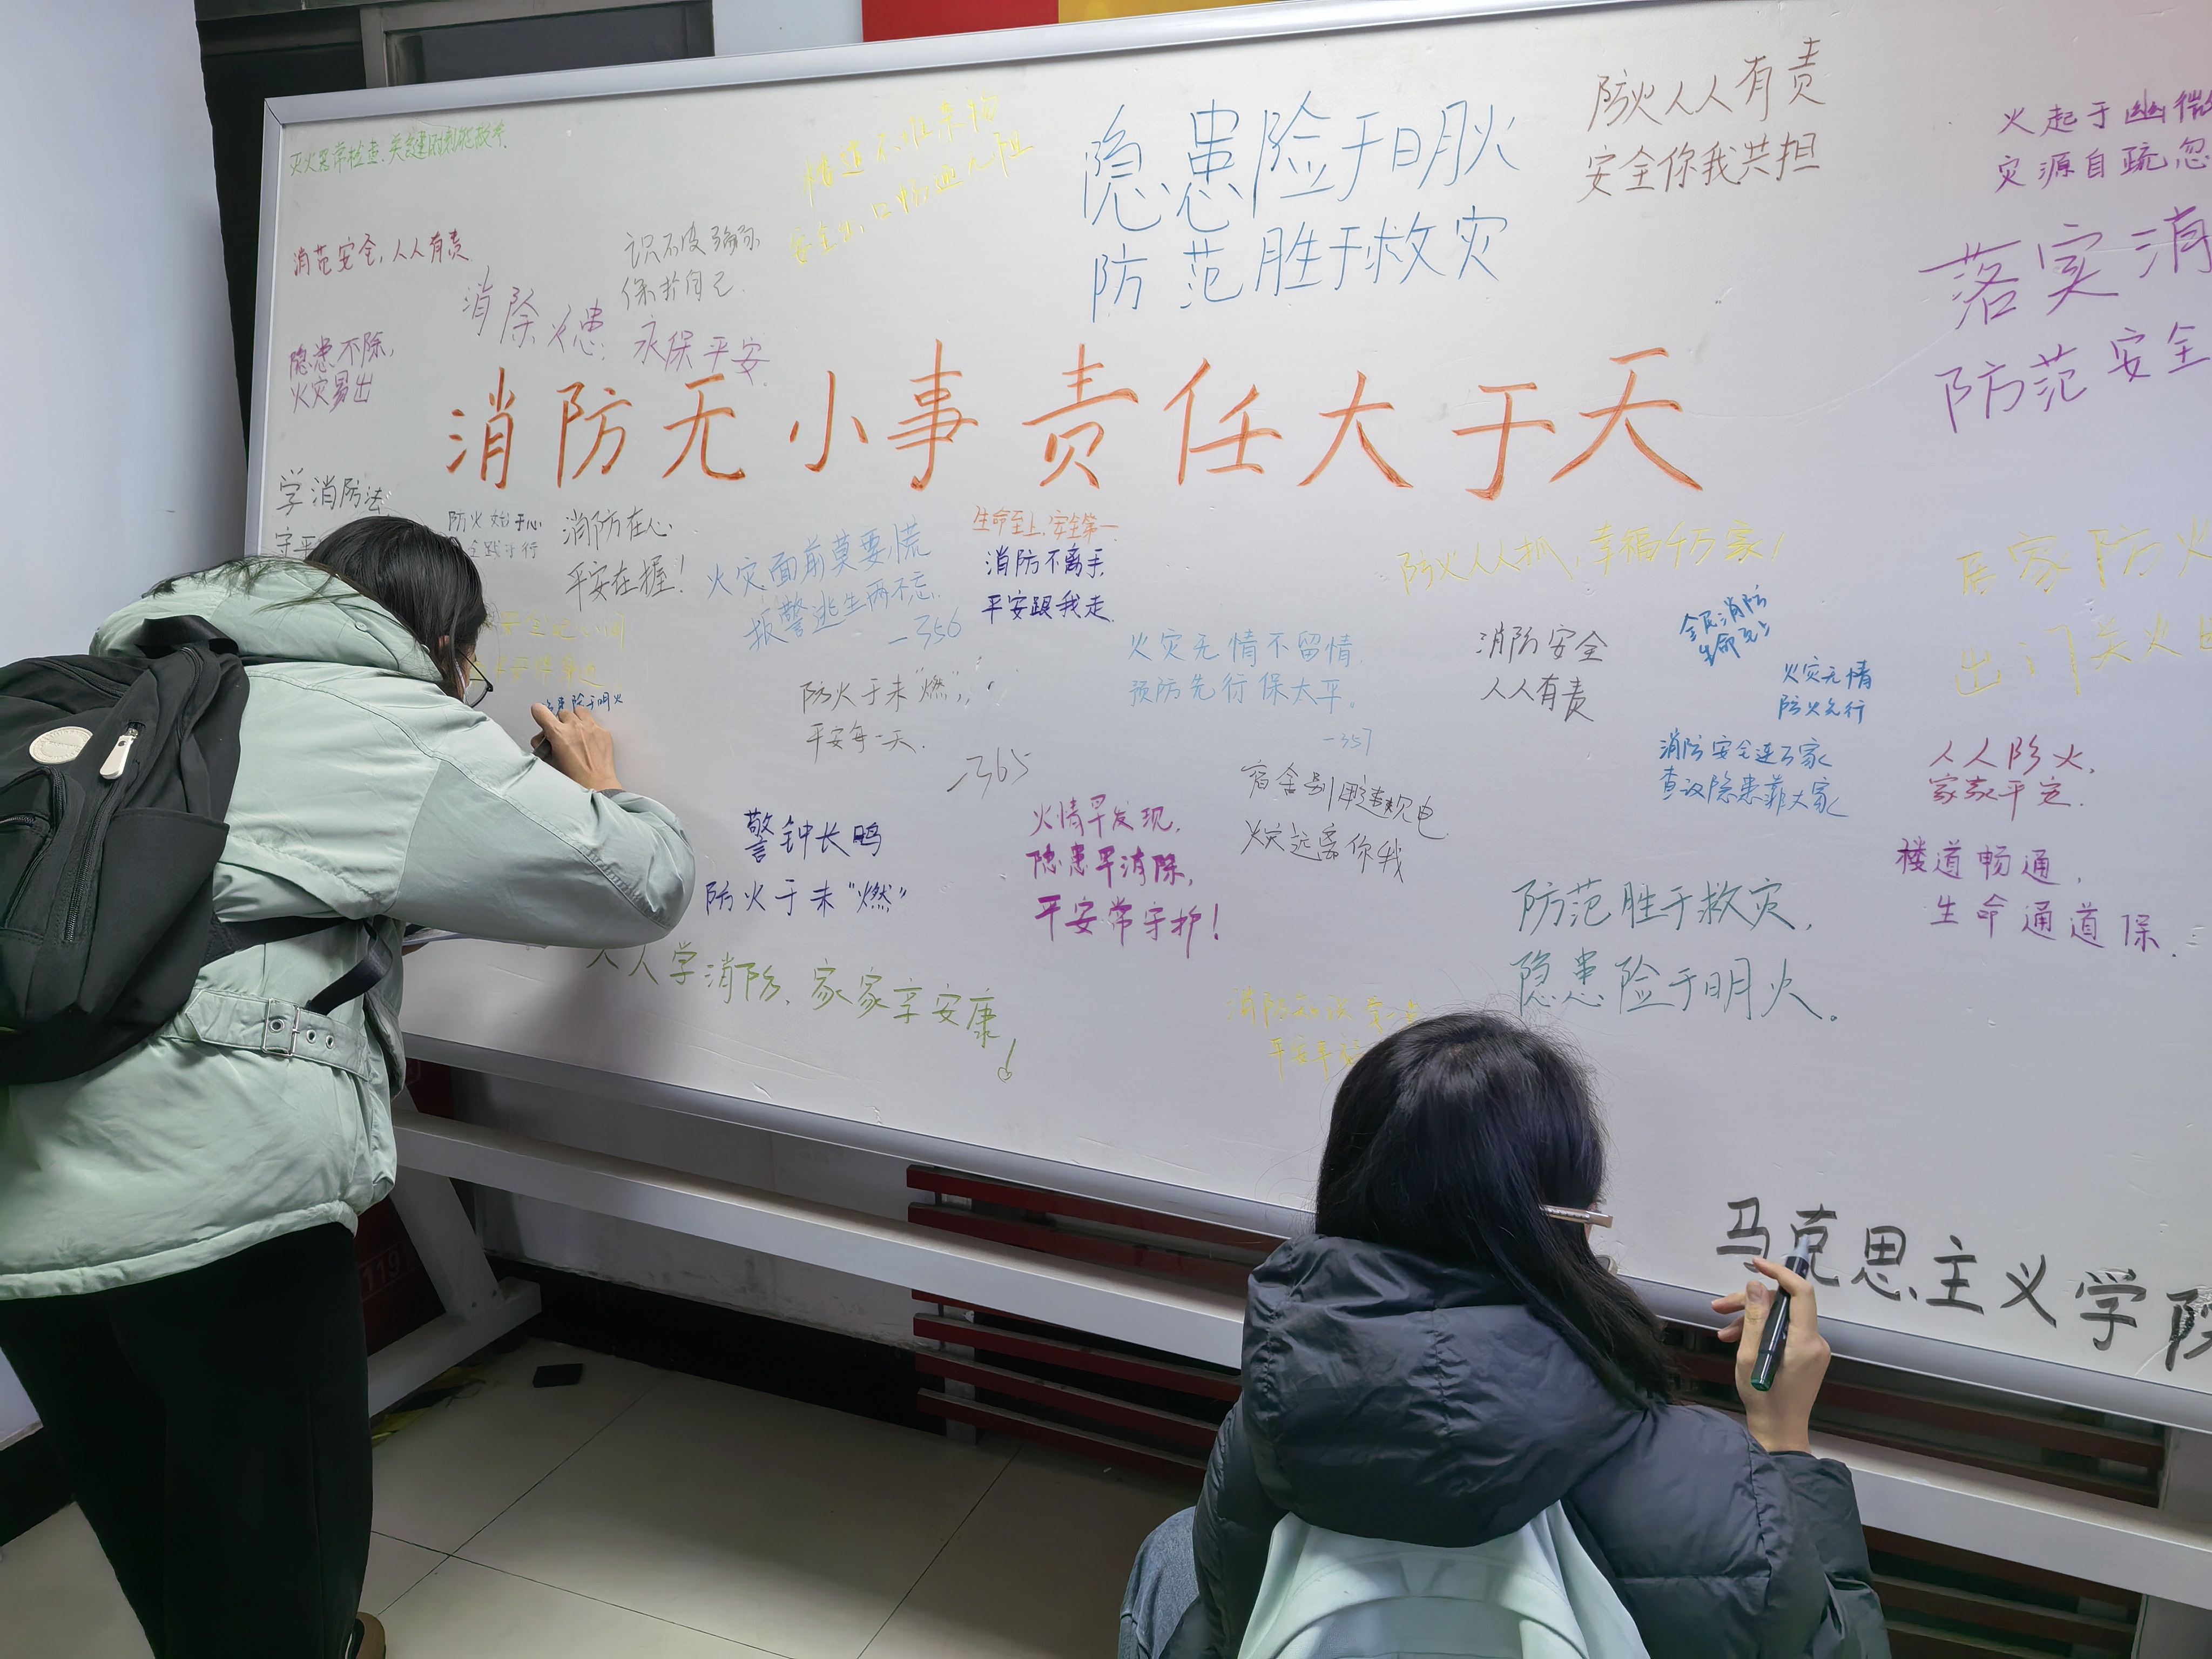 灭火器常检查,关键时刻能救命.
楼道不堆杂物
安全出口畅通无阻
隐患险于明火
防范胜于救灾
防火人人有责
安全你我共担
火起于幽微
灾源自疏忽
消范安全,人人有责
保护自己.
消除火患,永保平安.
隐患不除,
火灾易出
落实消
防范安全
消防无小事责任大于天
学消防法
守平
防火始于心
全践于行
消防在心
平安在握!
火灾面前莫要慌
报警逃生两不忘.
-356
生命至上,安全第一
消防不离手
平安跟我走
防火人人抓,幸福千万家!
居家防火
出门关火
险于明火
防火于未“燃”,
平安每一天.
-365
火灾无情不留情.
预防先行保太平。
-357
消防安全
人人有责
全民消防
生命至上
火灾无情
防火先行
消防安全连万家
查改隐患靠大家
人人防火,
家家平安.
警钟长鸣
防火于未“燃”
火情早发现,
隐患早消除,
平安常守护!
宿舍别用违规电
火灾远离你我
防范胜于救灾,
隐患险于明火。
楼道畅通,
生命通道保.
人人学消防、家家享安康
消防知识
马克思主义学院
119